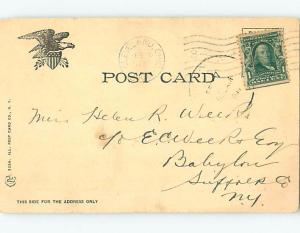 POST CARD
Miss Helen R. Weeks
c/o E.C. Weeks Esq
Babylon
Suffolk Co
N.Y.
THIS SIDE FOR THE ADDRESS ONLY
ILL. POST CARD CO., N. Y.
1